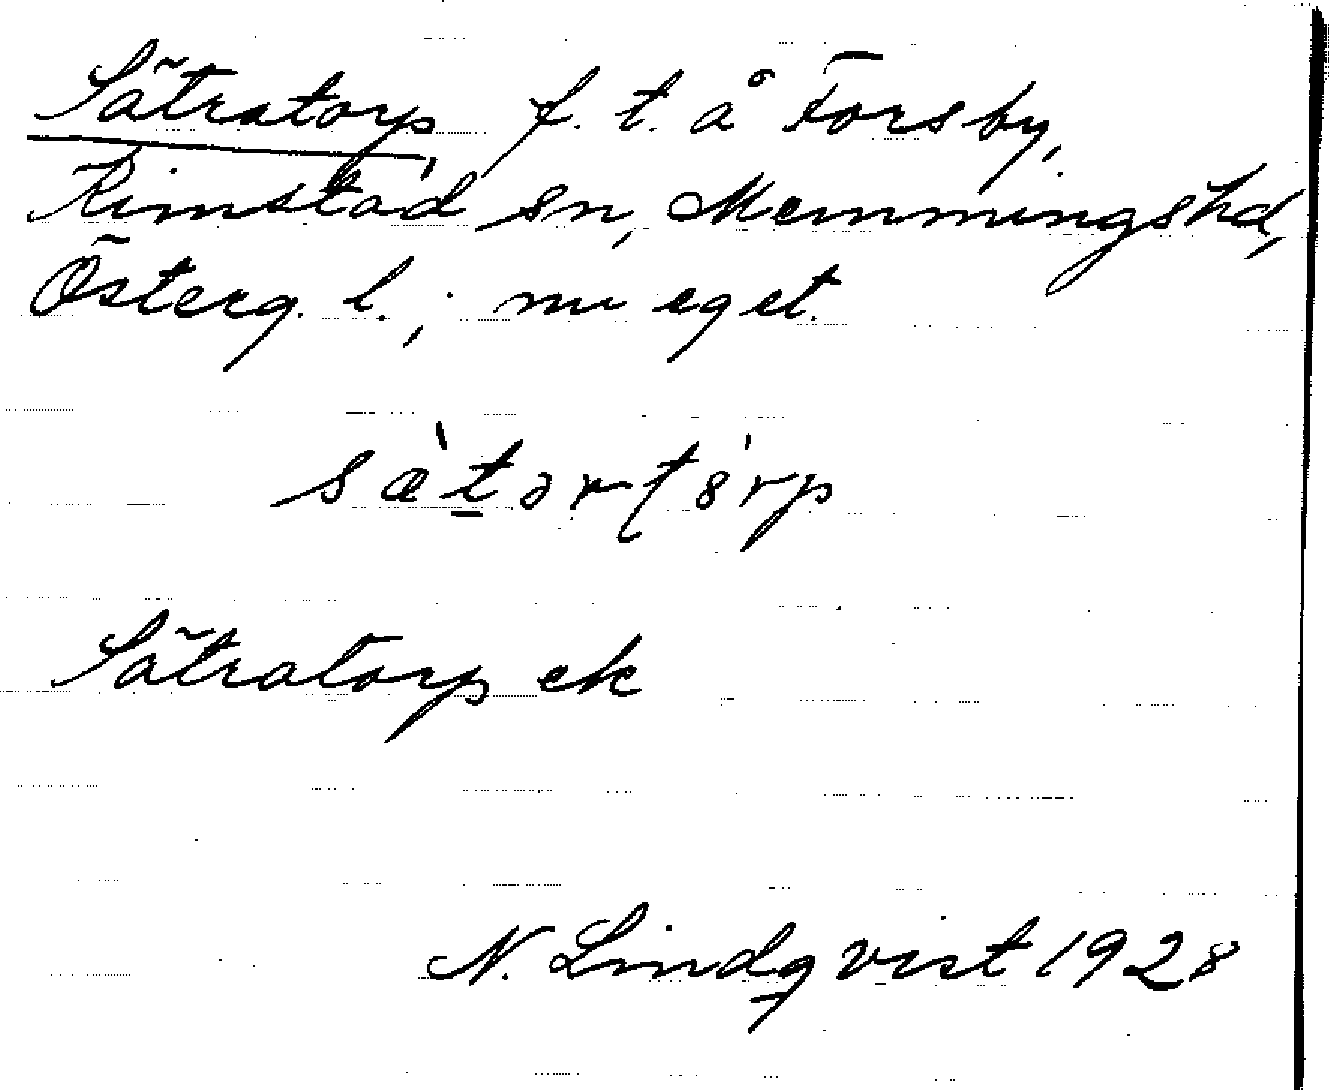 Sätratorp f. t. å Forsby,
Kimstad sn, Memmingshd,
Österg. l.; nu eget.
sæ̀tərtȯrp
Sätratorp ek
N. Lindqvist 1928